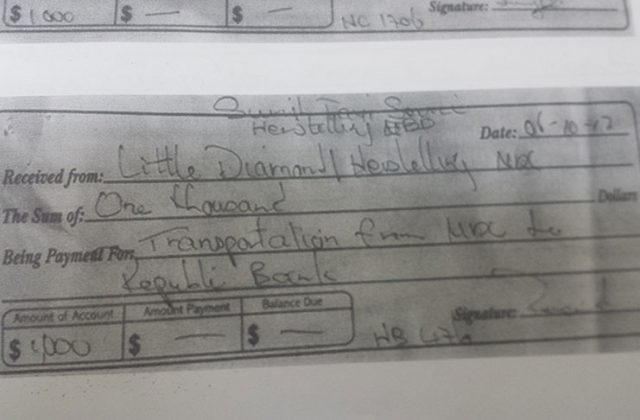 $ 1000 $ — $ — HC 1706 Signature:
Sunil Taxi
Herstelling EBD
Date: 06-10-12
Received from: Little Diamond/Herstelling NDC
The Sum of: One thousand Dollars
Being Payment For: Transportation from NDC to
Republic Bank
Amount of Account Amount Payment Balance Due
Signature:
$ 1,000 $ — $ — HB